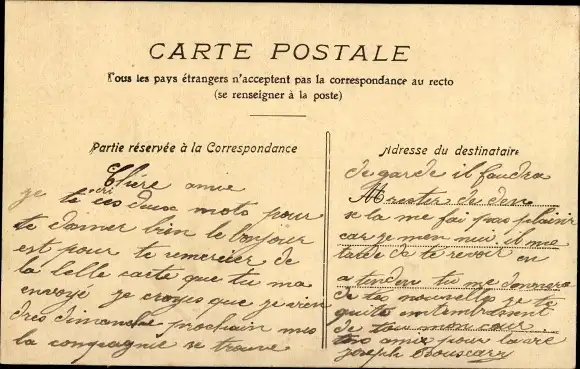 CARTE POSTALE
Tous les pays étrangers n'acceptent pas la correspondance au recto
(se renseigner à la poste)
Partie réservée à la Correspondance
Chére amie
je té cri ces deux mots pour
te danner bien le bonjour
est pour te remercier de
la belle carte que tu ma
envoyé je croyes que je vien
dres dimanche prochain mes
la compagnie se trouve
Adresse du destinataire
de garde il faudra
rester de
se la me fai pas plaisir
car je men nui il me
tarde de te revoir en
a tenden tu me donnera
de tes nouvelles je te
quite
de tou mon cœur
ton amie pour la vie
Joseph